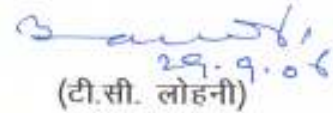 29.9.06
(टी.सी. लोहनी)